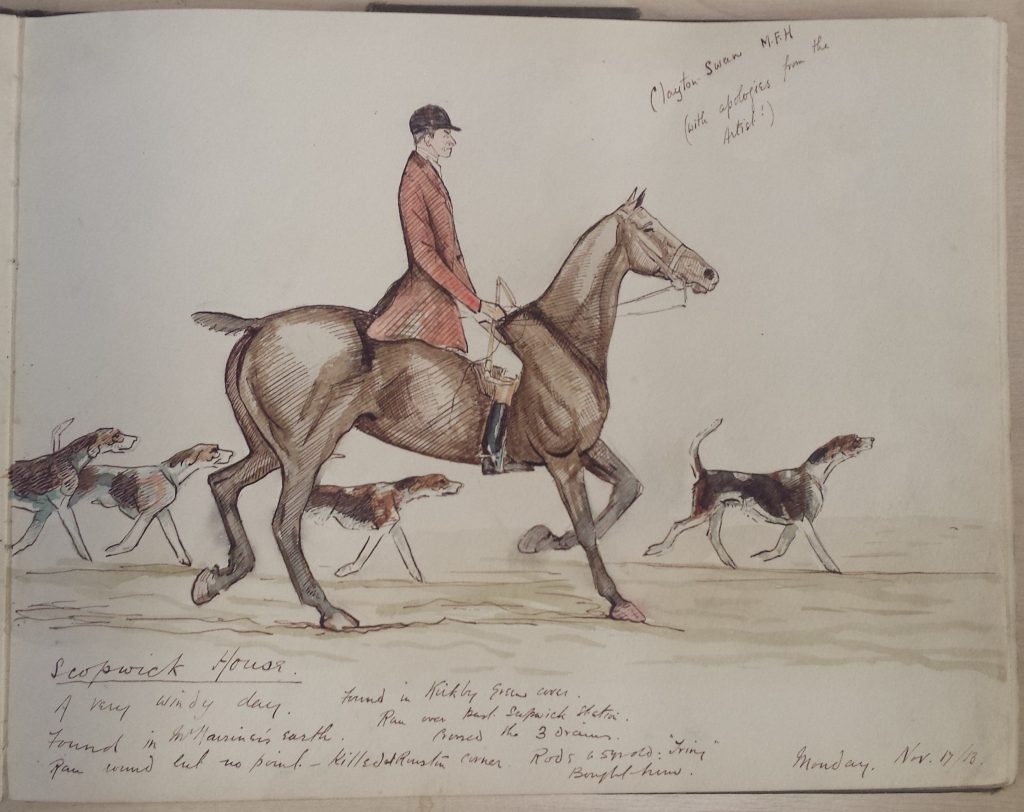 Clayton Swan M.F.H
(with apologies from the
Artist!)
Scopwick House.
A very windy day.
Found in Kirkby Green cover.
Ran over past Scopwick Station.
Crossed the 3 drains.
Found in earth.
Ran round but no point - Killed at corner. Rode a 5 yr old:
Bought him.
Monday. Nov. 17/13.